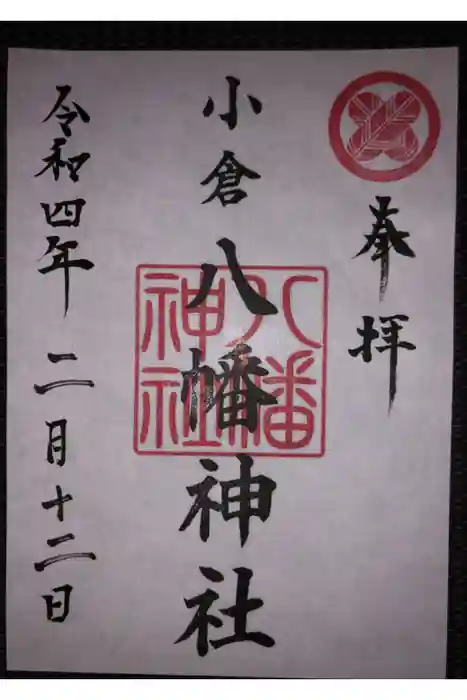 奉拝
小倉八幡神社
八幡
神社
令和四年二月十二日